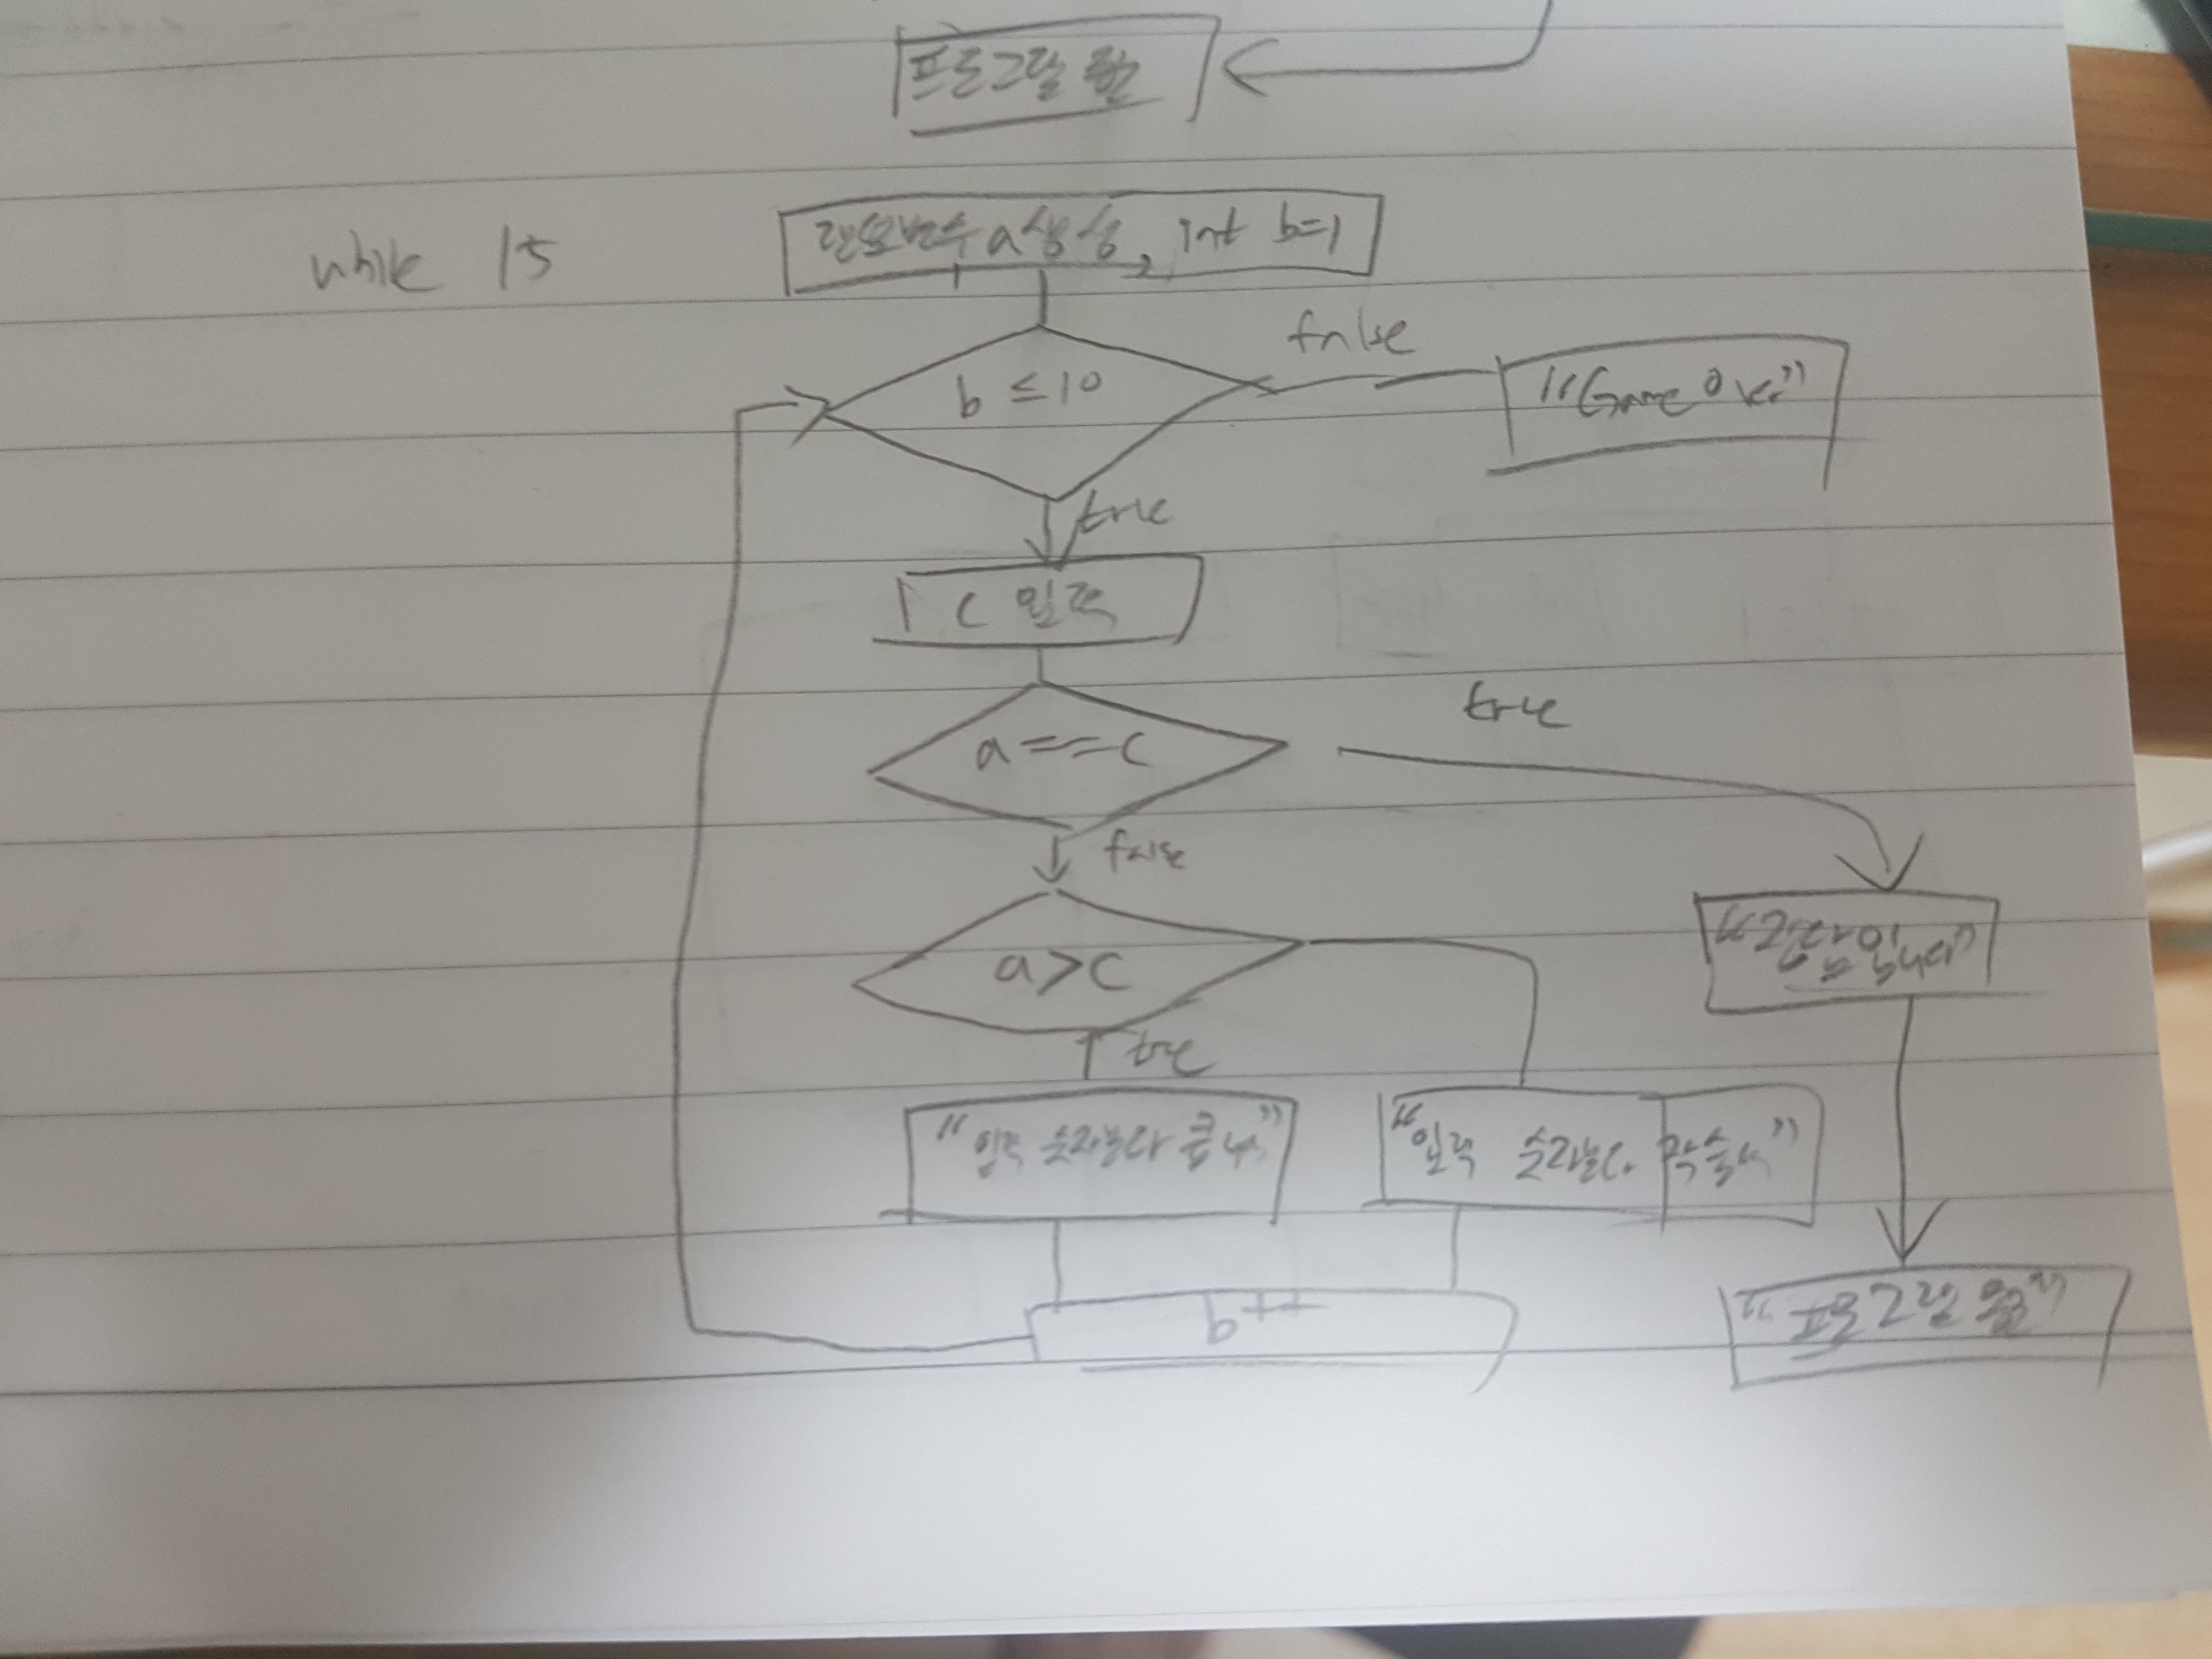 프로그램
while 15
랜덤변수 a 생성, int b=1
b ≤ 10
false
"Game Over"
true
c 입력
a==c
true
false
a>c
"정답입니다"
true
"입력 숫자보다 큽니다"
"입력 숫자보다 작습니다"
b++
"프로그램